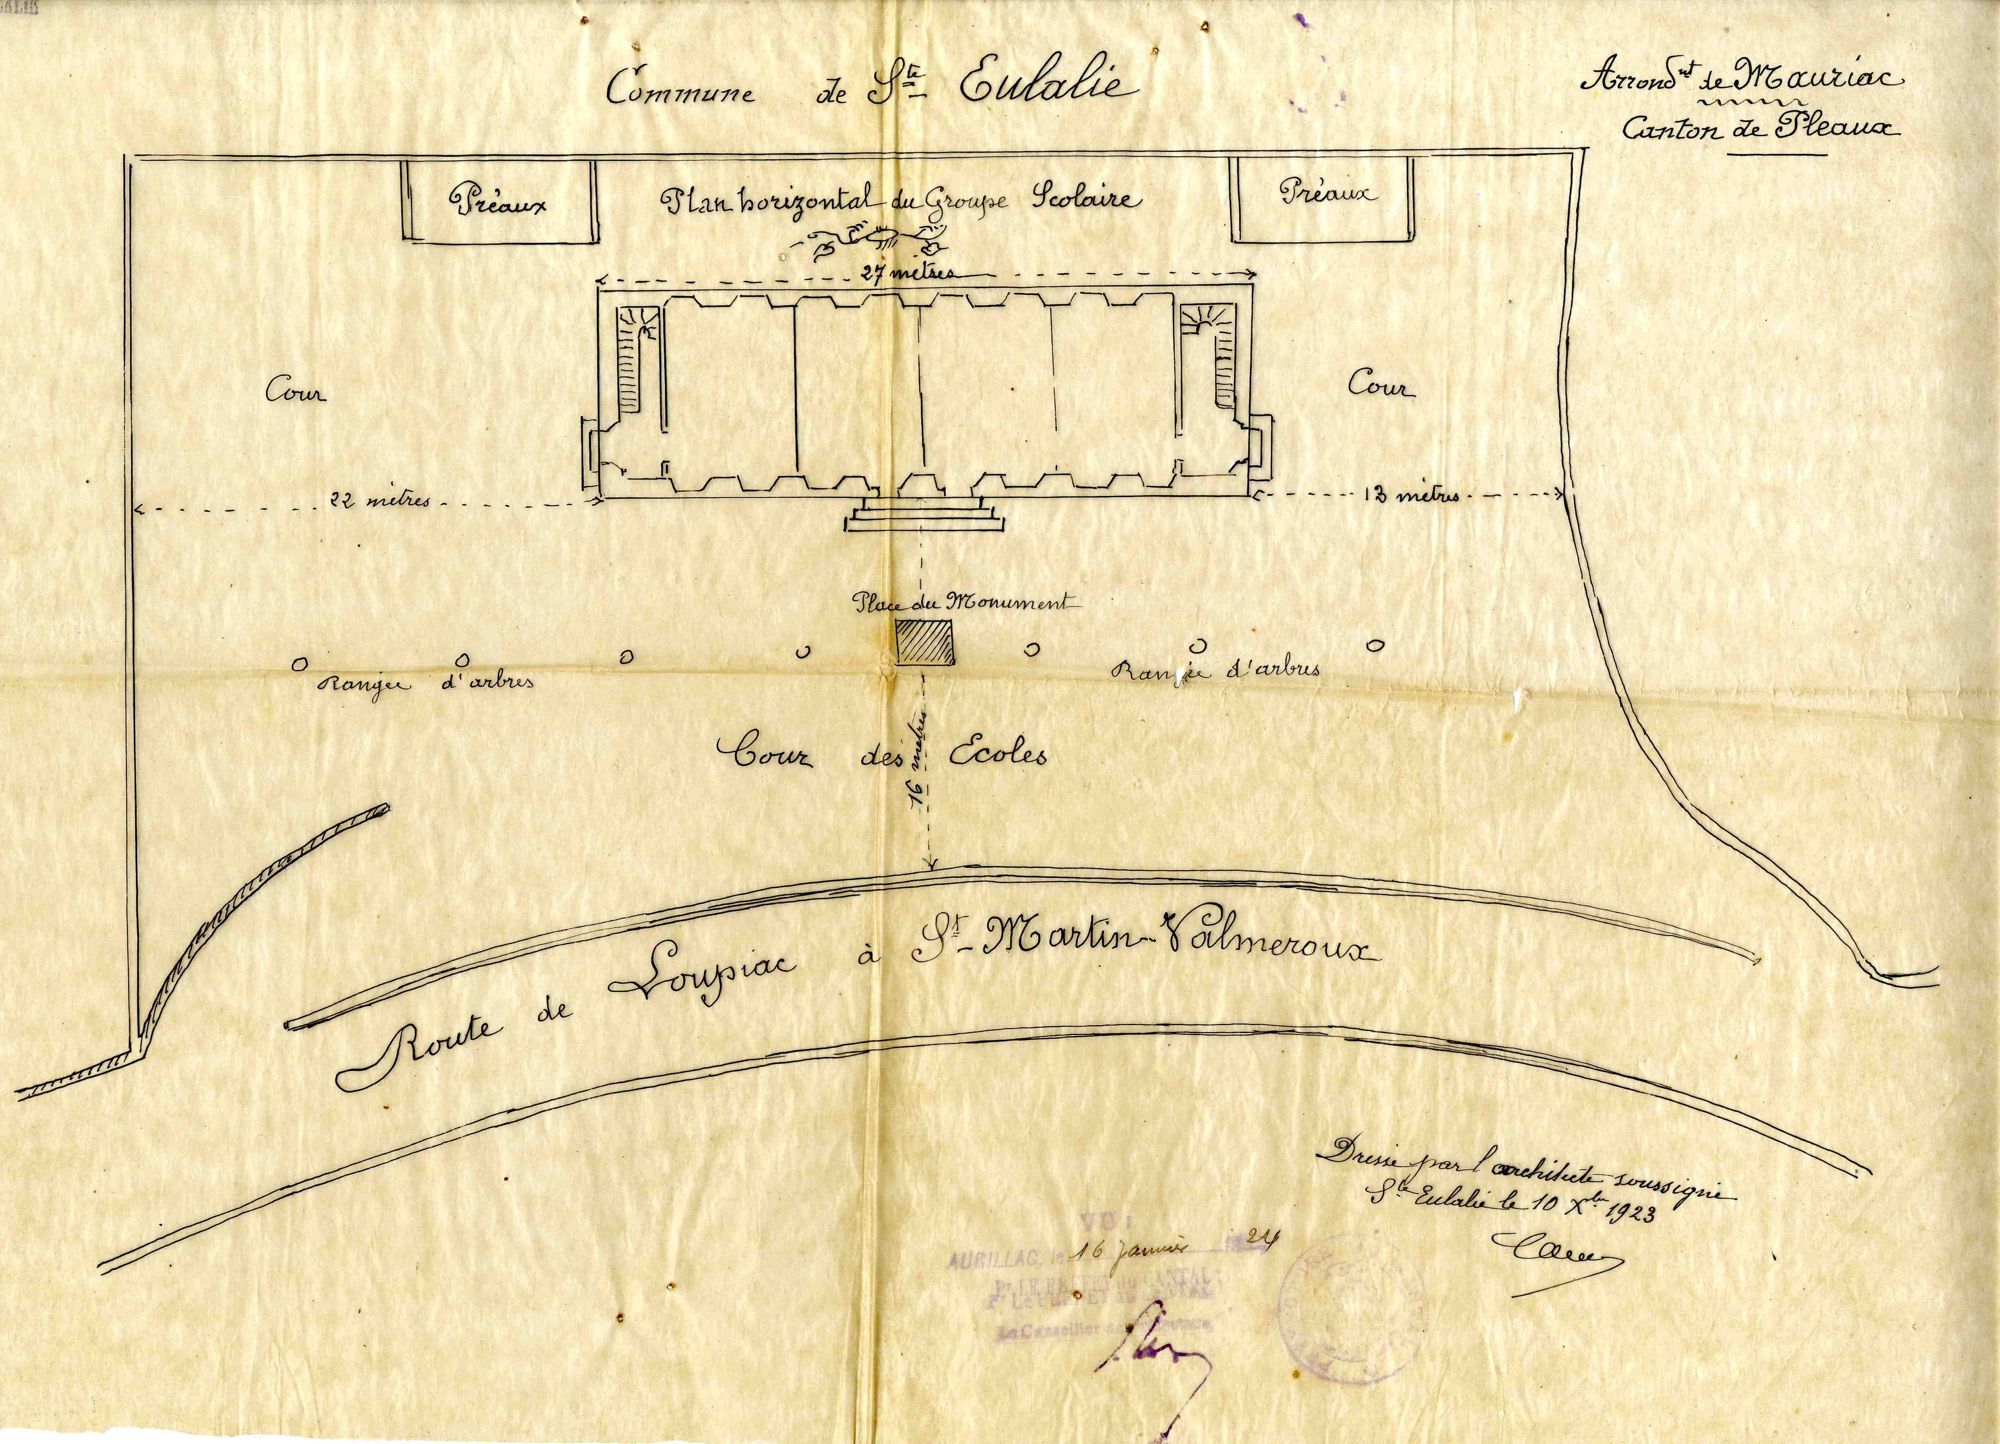 Commune de Ste Eulalie
Arrondnt de Mauriac
Canton de Pleaux
Préaux
Plan horizontal du Groupe Scolaire
Préaux
27 mètres
Cour
Cour
22 mètres
13 mètres
Place du Monument
Rangée d'arbres
Rangée d'arbres
Cour des Ecoles
16 mètres
Route de Loupiac à St-Martin-Valmeroux
Dressé par l'architecte soussigné
Ste Eulalie le 10 Xbre 1923
VU :
AURILLAC, le 16 Janvier 1924
Pr LE PRÉFET du CANTAL
Le Conseiller de Préfecture